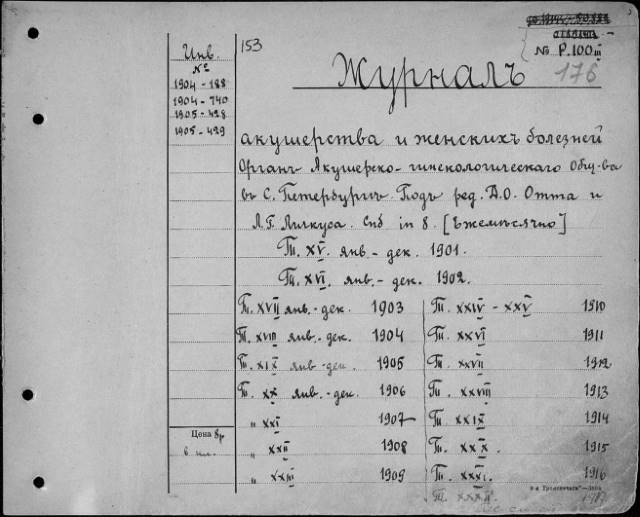 № Р.100 III
153
176
Инв. №
1904 - 188
1904 - 740
1905 - 428
1905 - 429
Журналъ
акушерства и женскихъ болезней
Органъ Акушерско-гинекологическаго Общ-ва
въ С. Петербургѣ. Подъ ред. Д.О. Отта и
Л.Г. Личкуса. Спб in 8. [Ежемѣсячно]
Т. XV. янв - дек. 1901.
Т. XVI. янв. - дек. 1902.
Т. XVII янв. - дек. 1903
Т. XVIII янв. - дек. 1904
Т. XIX янв - дек. 1905
Т. XX янв. - дек. 1906
„ XXI 1907
„ XXII 1908
„ XXIII 1909
Т. XXIV - XXV 1910
Т. XXVI 1911
Т. XXVII 1912
Т. XXVIII 1913
Т. XXIX 1914
Т. XXX. 1915
Т. XXXI. 1916
Т. XXXII 1917
Цена 8р